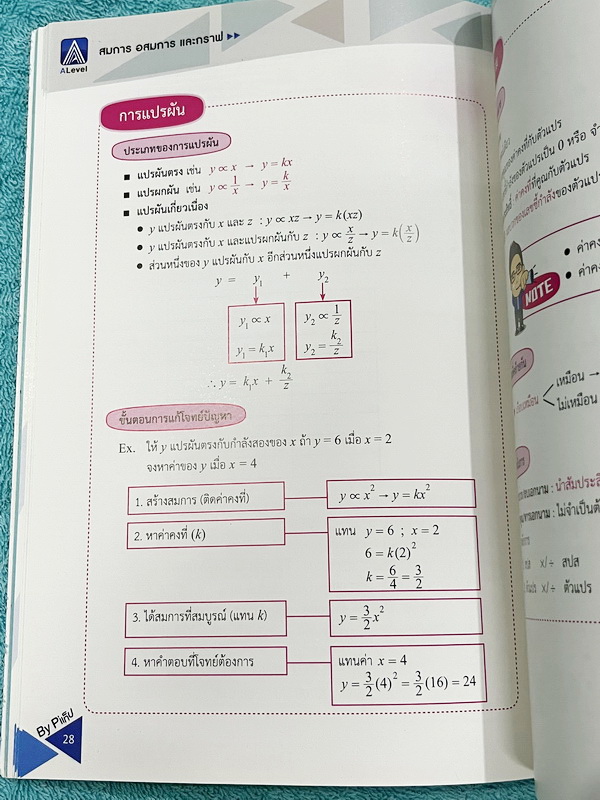 ALevel
สมการ อสมการ และกราฟ ▸▸
การแปรผัน
ประเภทของการแปรผัน
■ แปรผันตรง เช่น y ∝ x → y = kx
■ แปรผกผัน เช่น y ∝ 1/x → y = k/x
■ แปรผันเกี่ยวเนื่อง
● y แปรผันตรงกับ x และ z : y ∝ xz → y = k(xz)
● y แปรผันตรงกับ x และแปรผกผันกับ z : y ∝ x/z → y = k(x/z)
● ส่วนหนึ่งของ y แปรผันกับ x อีกส่วนหนึ่งแปรผกผันกับ z
y = y₁ + y₂
y₁ ∝ x
y₁ = k₁x
y₂ ∝ 1/z
y₂ = k₂/z
∴ y = k₁x + k₂/z
ขั้นตอนการแก้โจทย์ปัญหา
Ex. ให้ y แปรผันตรงกับกำลังสองของ x ถ้า y = 6 เมื่อ x = 2
จงหาค่าของ y เมื่อ x = 4
1. สร้างสมการ (ติดค่าคงที่)
y ∝ x² → y = kx²
2. หาค่าคงที่ (k)
แทน y = 6 ; x = 2
6 = k(2)²
k = 6/4 = 3/2
3. ได้สมการที่สมบูรณ์ (แทน k)
y = 3/2 x²
4. หาคำตอบที่โจทย์ต้องการ
แทนค่า x = 4
y = 3/2 (4)² = 3/2 (16) = 24
By Pแท็ป
28
องค่าคงที่กับตัวแปร
ของตัวแปรเป็น 0 หรือ
ที่คูณกับตัวแปร
ของตัวแปร
● ค่าคง
● ค่าคง
NOTE
เหมือน →
ไม่เหมือน
: นำสัมประสิ
: ไม่จำเป็นต้
x/÷ สปส
x/÷ ตัวแปร